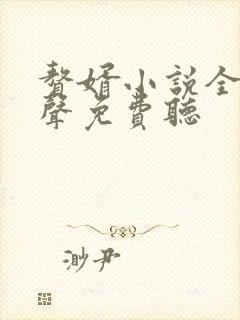 贅婿小説全
聲免費聽
渺尹